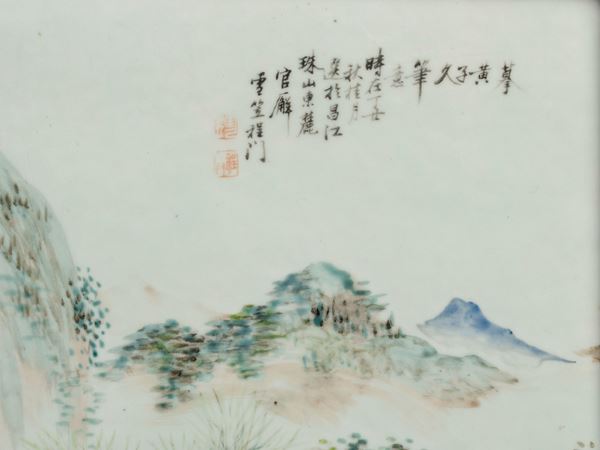 摹黃子久筆意
時在丁丑
秋桂月
選於昌江
珠山東麓
官廨
雪笠程門